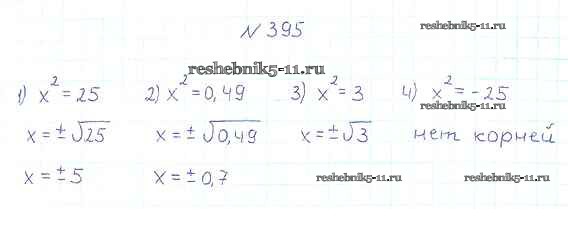 № 395
reshebnik5-11.ru
reshebnik5-11.ru
1) x² = 25 2) x² = 0,49 3) x² = 3 4) x² = -25
reshebnik5-11.ru
x = ±√25 x = ±√0,49 x = ±√3 нет корней
x = ±5 x = ±0,7 reshebnik5-11.ru reshebnik5-11.ru